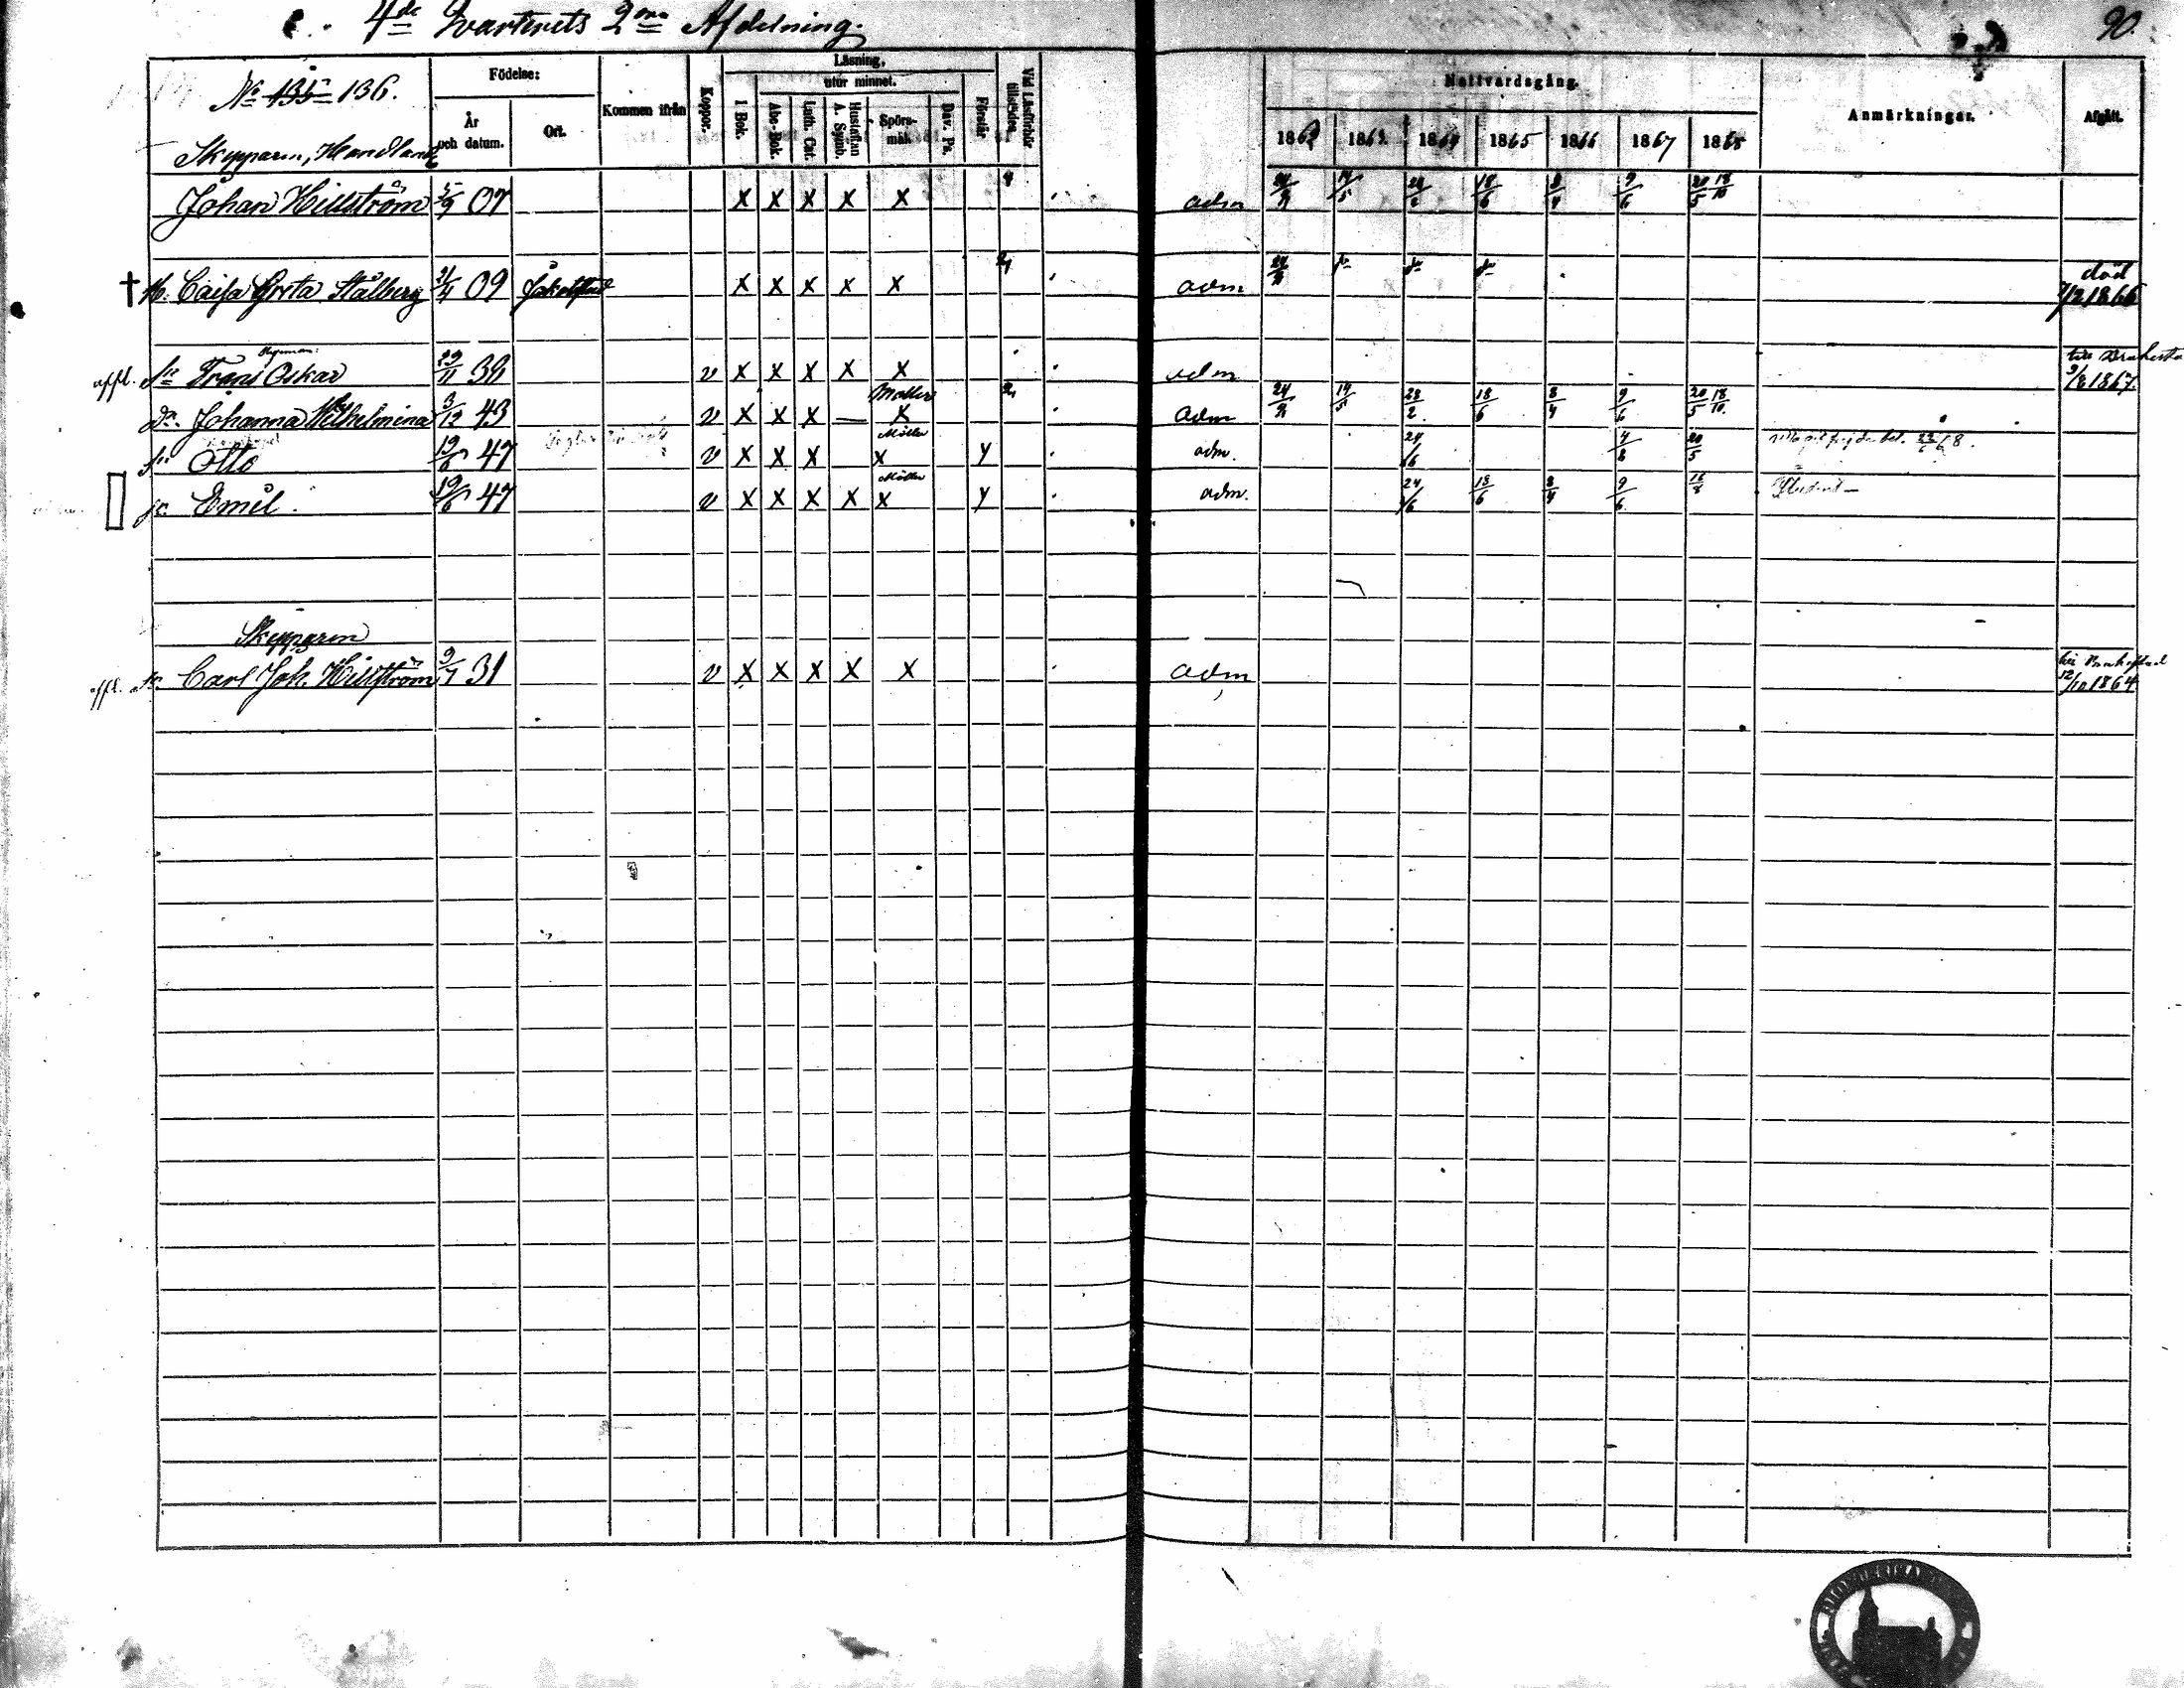 4de Qvarterets 2dra Afdelning.
90.
No 135 136.
Skepparn, Handland
Födelse:
År och datum.
Ort.
Kommen ifrån
Koppor.
Läsning,
utur minnet.
I Bok.
Abc-Bok.
Luth. Cat.
Hustaflan A. Symb.
Spörsmål.
Dav. Ps.
Förstår.
Vid Läsförhör tillstädes.
Nattvardsgång.
1862 1863 1864 1865 1866 1867 1868
Anmärkningar.
Afgått.
Johan Hillström 5/9 07 X X X X X adm 14/5 18/6 8/4 9/6 20/5 18/10
† H. Caisa Greta Stålberg 21/4 09 Jakobstad X X X X X adm död 7/2 1866
affl. Sn Frans Oskar 29/11 39 v X X X X X adm 9/8 1867.
Dr. Johanna Wilhelmina 3/12 43 v X X X — X adm 24/2 14/5 28/2 18/6 8/4 9/6 20/5 18/10
Sn Otto 19/6 47 v X X X Möller X Y adm. 24/6 4/8 20/5
Sn Emil. 19/6 47 v X X X X Möller X Y adm. 24/6 18/6 8/4 9/6 16/8 Student
Skepparen
affl. Sn Carl Joh. Hillström 9/7 31 v X X X X X adm 12/10 1864